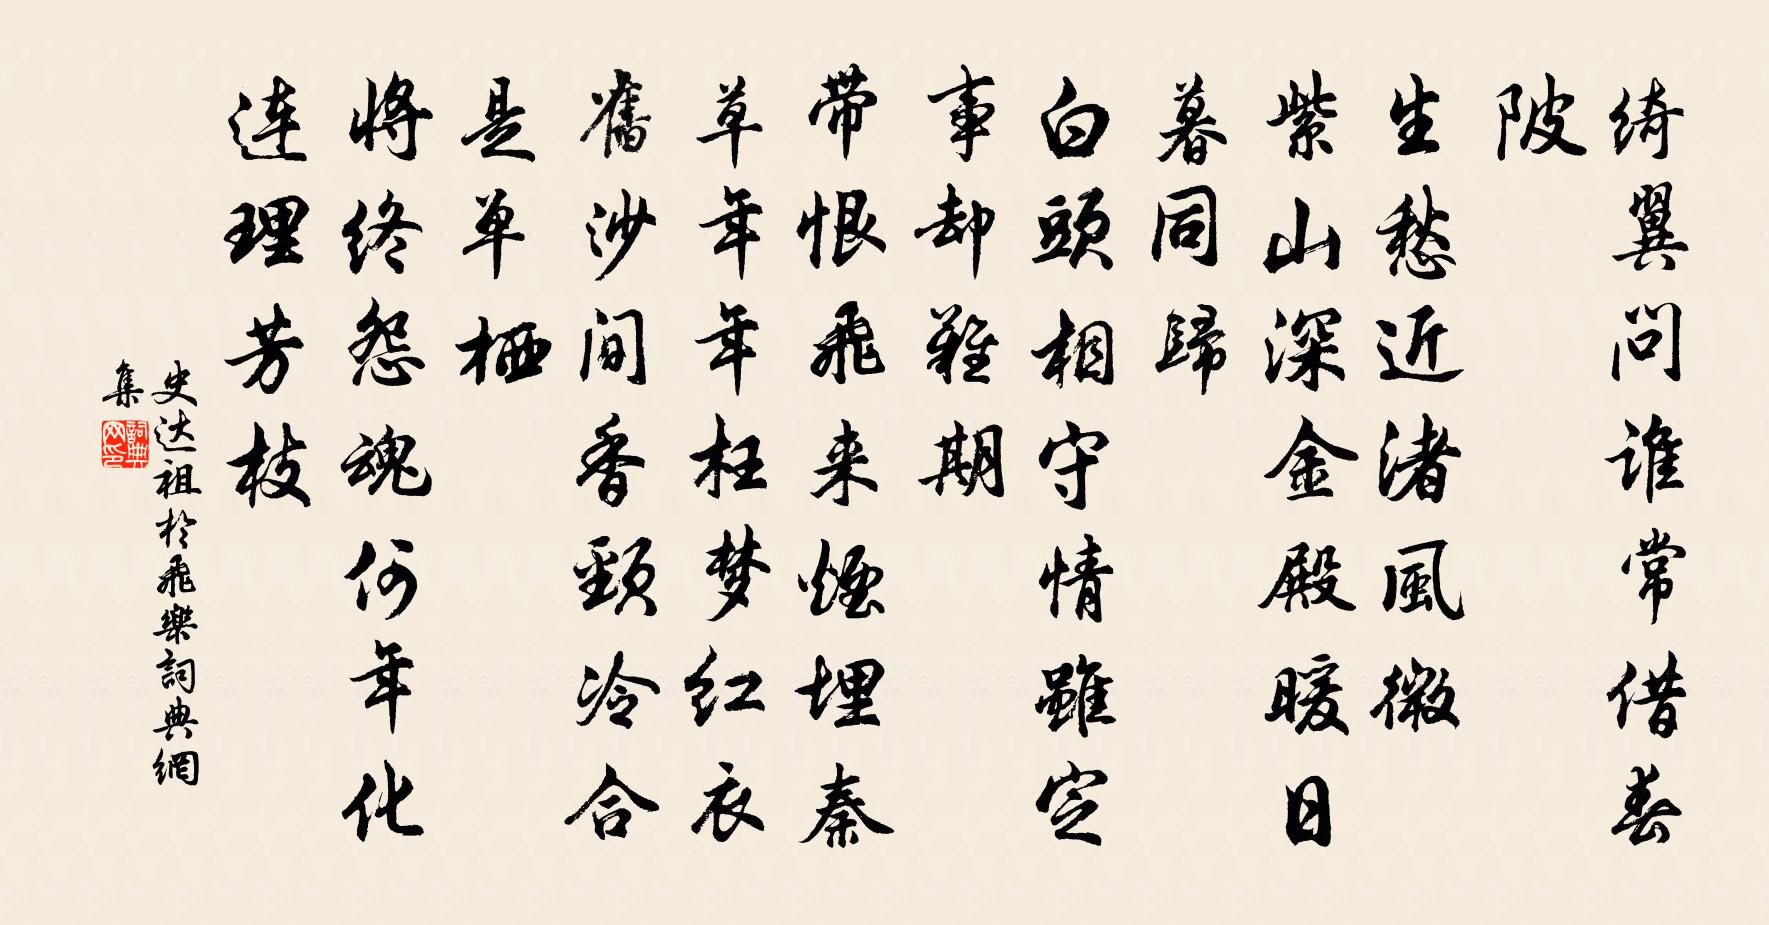 绮翼问谁常借春
陂
生愁近渚風微
紫山深金殿暖日
暮同歸
白頭相守情雖定
事却難期
带恨飛来煙埋秦
草年年枉梦红衣
舊沙间香頸冷合
是单栖
将终怨魂何年化
连理芳枝
史达祖於飛樂詞典網
集
詞典网印